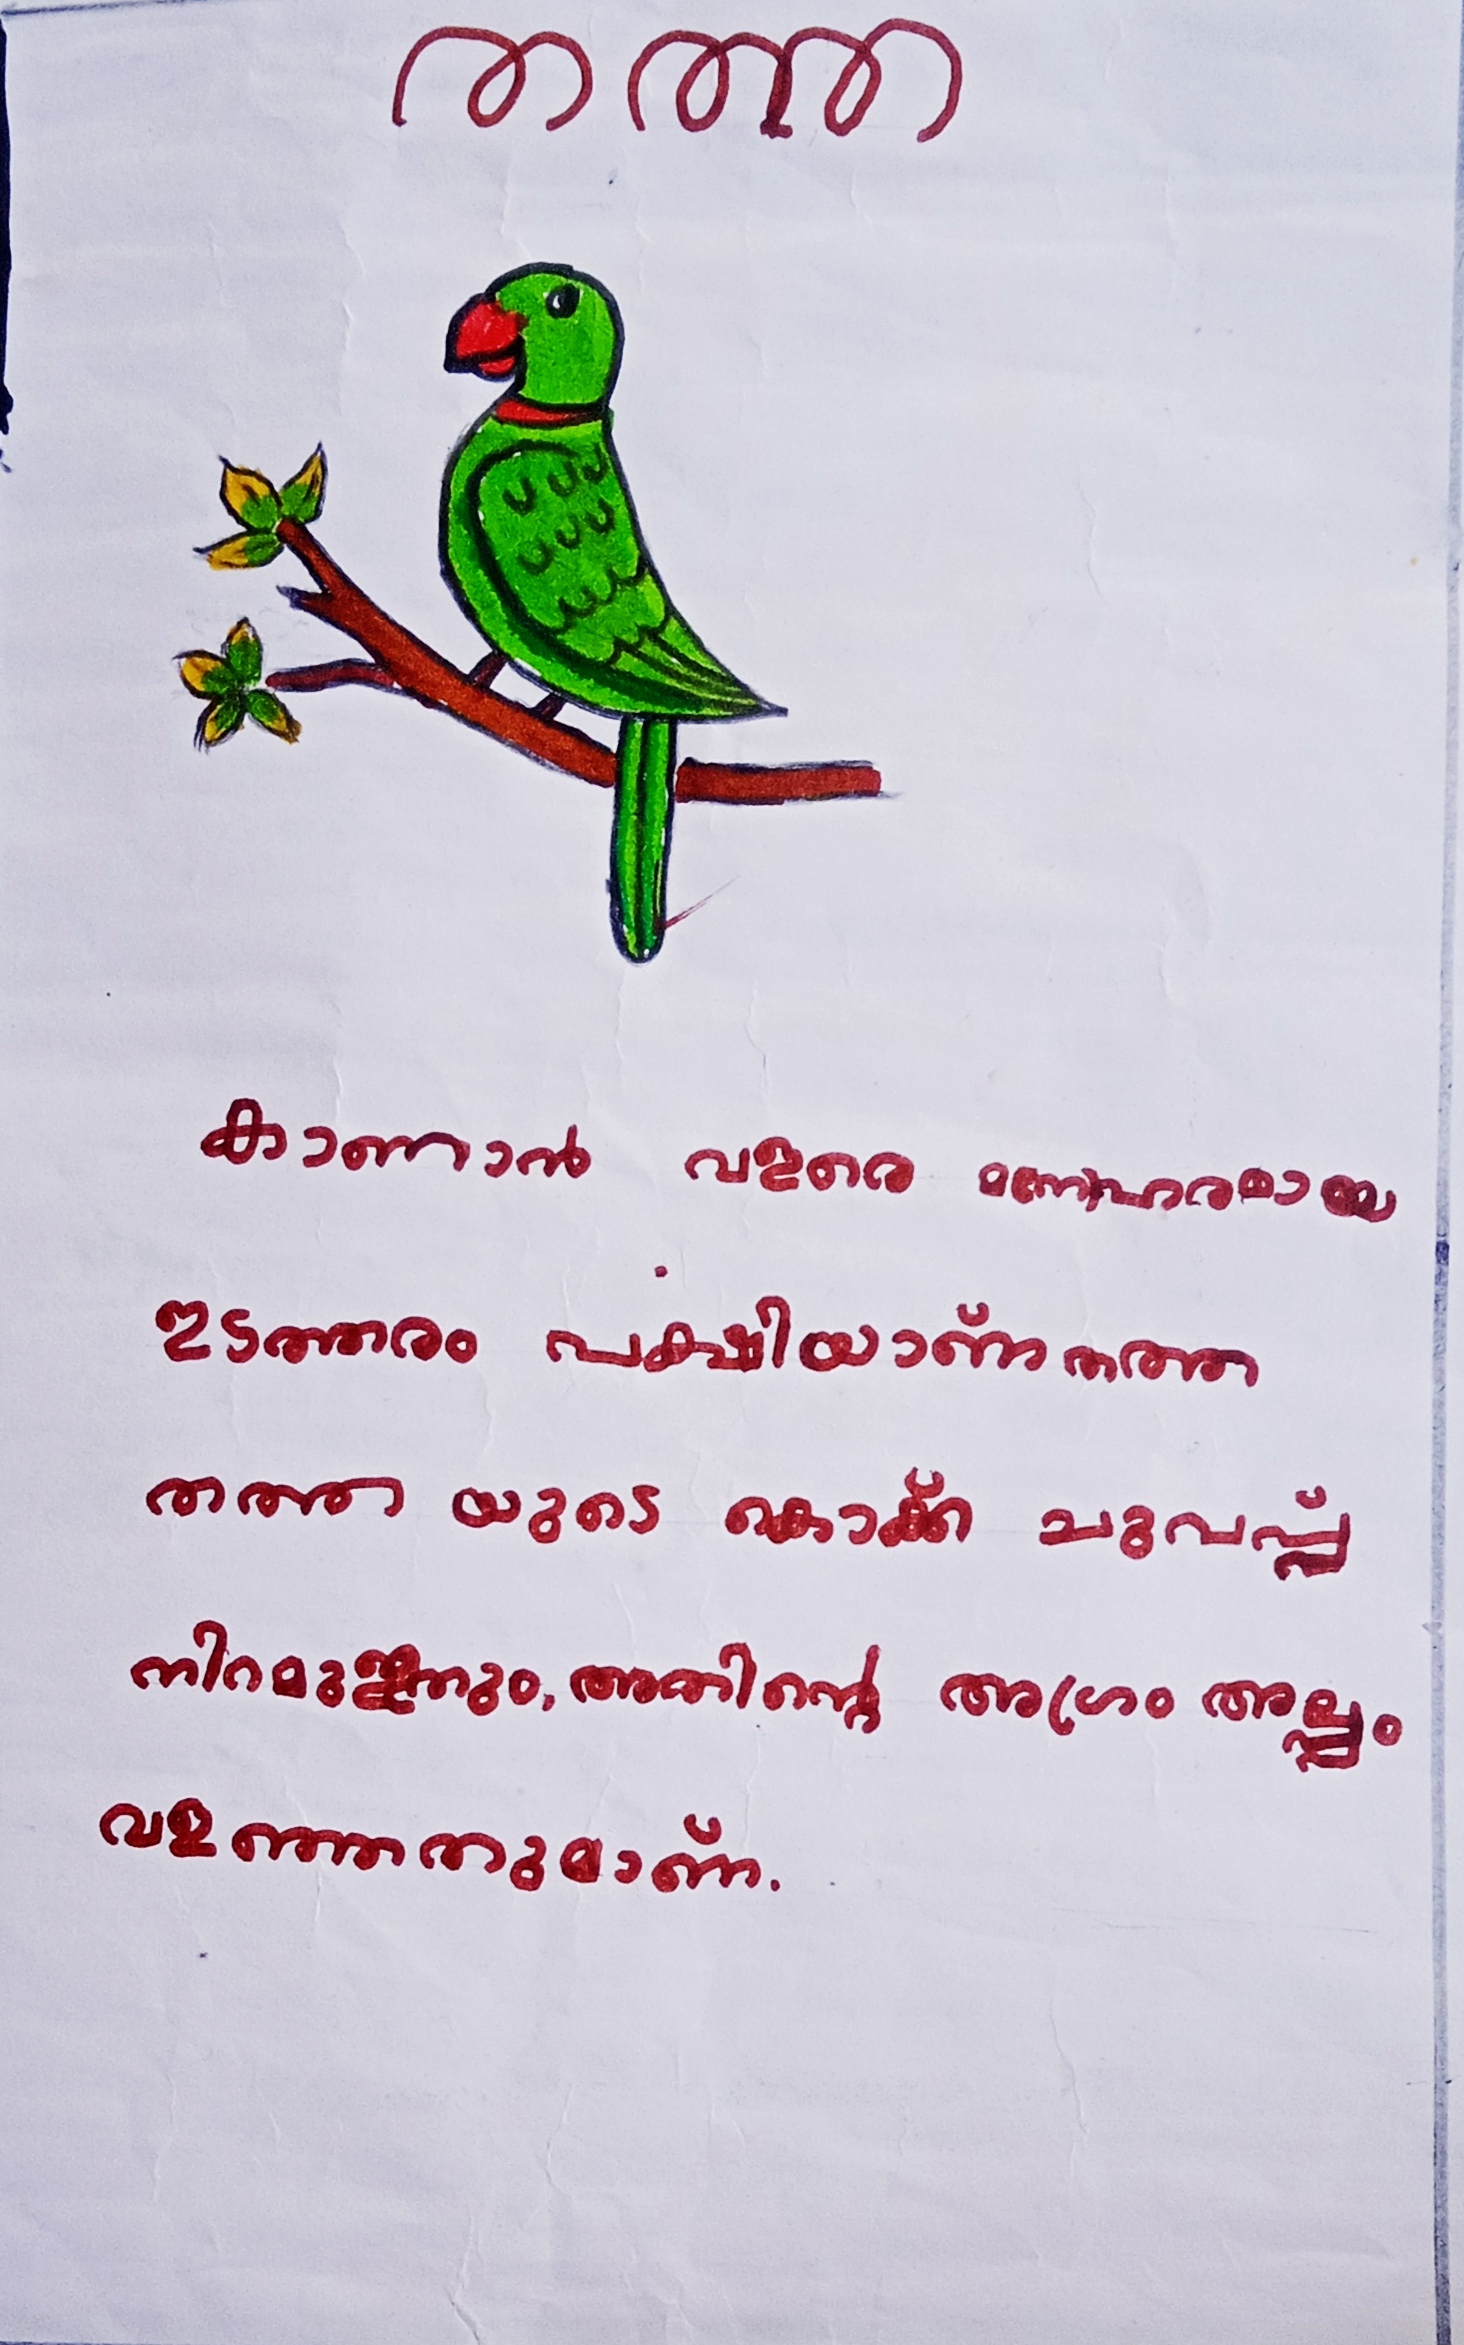 തത്ത
കാണാൻ വളരെ മനോഹരമായ
ഇടത്തരം പക്ഷിയാണ് തത്ത
തത്ത യുടെ കൊക്ക് ചുവപ്പ്
നിറമുള്ളതും, അതിന്റെ അഗ്രം അല്പം
വളഞ്ഞതുമാണ്.